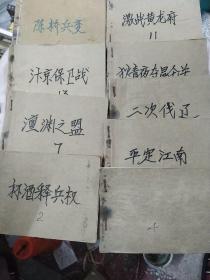 陈桥兵变
激战黄龙府
11
汴京保卫战
狄青夜夺昆仑关
二次伐辽
澶渊之盟
7
平定江南
杯酒释兵权
2
4